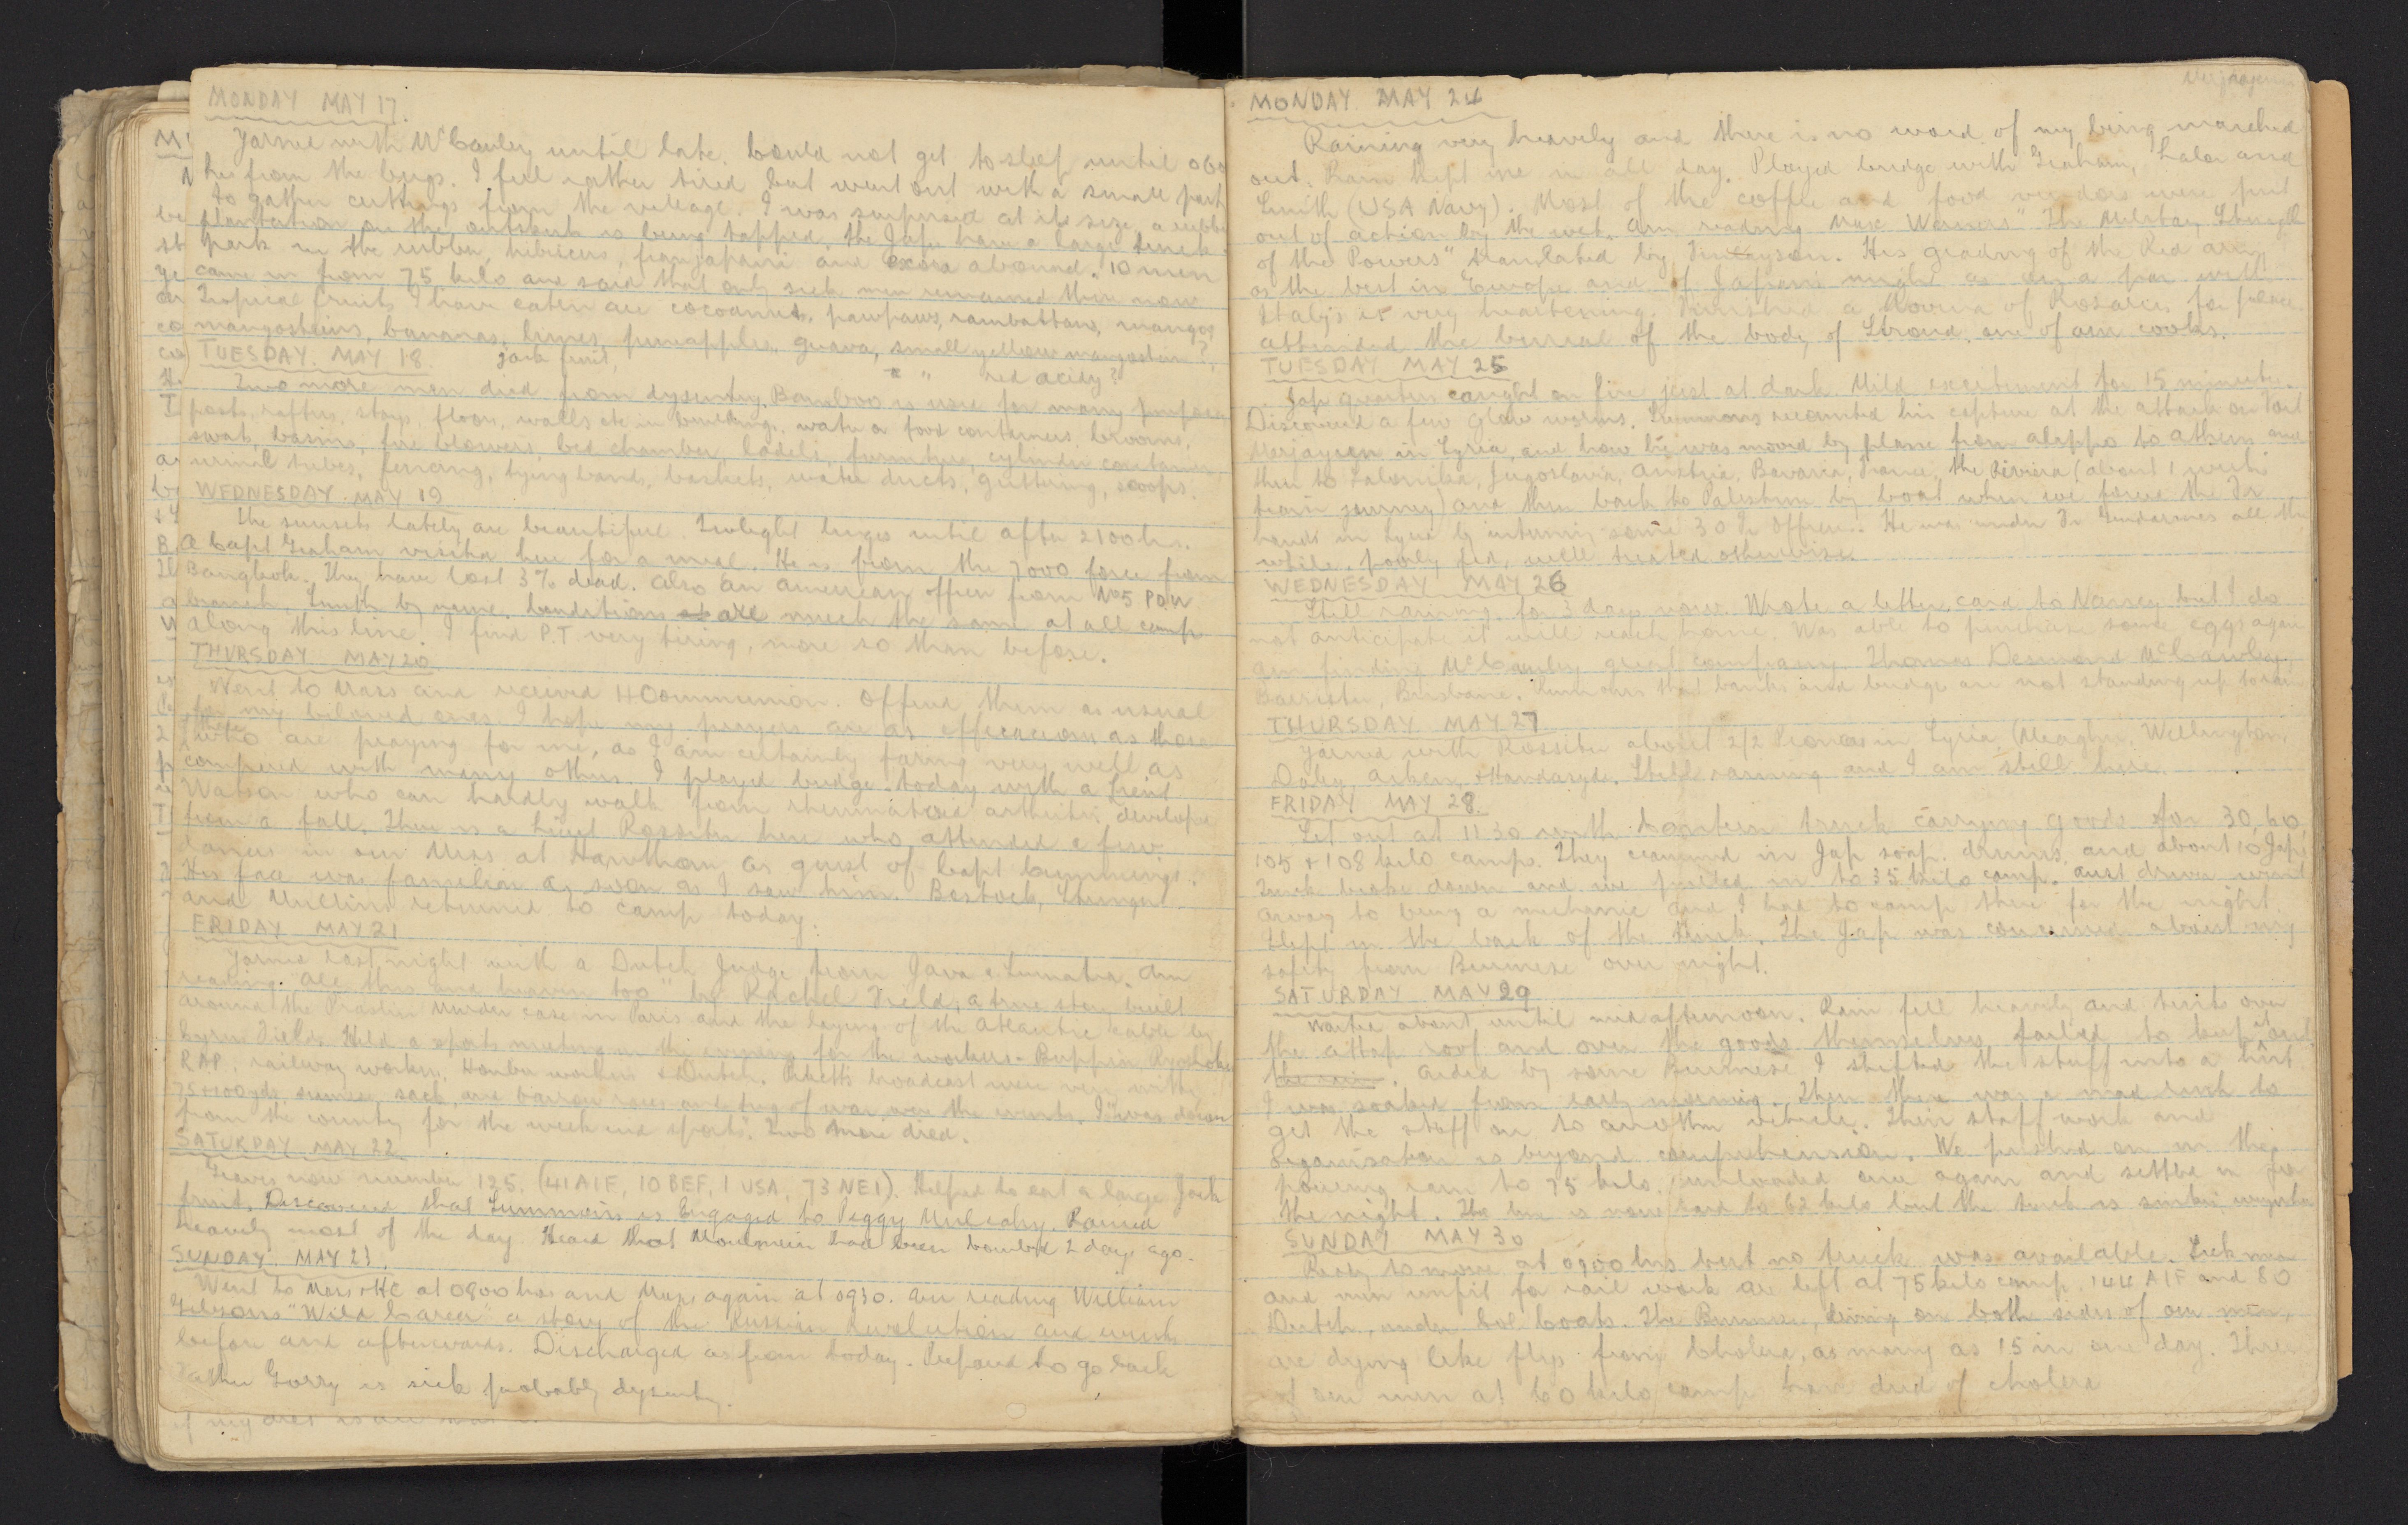 MONDAY MAY 17.
Yarned with McCauley until late. Could not get to sleep until 0600
hrs from the bugs. I feel rather tired but went out with a small party
to gather cuttings from the village. I was surprised at its size, a rubber
plantation on the outskirts is being tapped. The Japs have a large truck
park in the rubber, hibiscus, frangapani and exora abound. 10 men
came in from 75 kilo and said that only sick men remained there now
Tropical fruits I have eaten are cocoanuts, pawpaws, rambattans, mangos
mangosteins, bananas, limes, pineapples, guava, small yellow mangostein?,
Jack fruit, " " red acidy?
TUESDAY. MAY 18.
Two more men died from dysentry. Bamboo is used for many purposes
posts, rafters, stays, floors, walls etc in buildings, water or food containers, brooms,
swats, basins, fire blowers, bed chamber, ladels, furniture, cylinder containers,
urinal tubes, fencing, tying bands, baskets, water ducts, guttering, scoops.
WEDNESDAY MAY 19
The sunsets lately are beautiful. Twilight lingers until after 2100 hrs.
A Capt Graham visited here for a meal. He is from the 7000 force from
Bangkok. They have lost 3% dead. Also an American officer from No5 POW
branch, Smith by name. Conditions are much the same at all camps
along this line. I find P.T. very tiring, more so than before.
THURSDAY MAY 20
Went to Mass and received HCommunion. Offered them as usual
for my beloved ones. I hope my prayers are as effecacious as those
who are praying for me, as I am certainly faring very well as
compared with many others. I played bridge today with a Lieut
Watson who can hardly walk from rheumatoid arthritis developed
from a fall. There is a Lieut Rossiter here who attended a few
dances in our Mess at Hawthorn as guest of Capt Cummings.
His face was familiar as soon as I saw him. Bostock,
and Mullins returned to camp today.
FRIDAY MAY 21
Yarned last night with a Dutch Judge from Java & Sumatra. Am
reading "All this and heaven too" by Rachel Field, a true story built
around the Praslin Murder case in Paris and the laying of the Atlantic cable by
Cyrus Field. Held a sports meeting in the evening for the workers -
RAP, railway workers, workers & Dutch. broadcast were very witty
75 & 100 yds, sack, and barrow races and tug of war were the events. I "was down
from the country for the week end sports". Two more died.
SATURDAY MAY 22
Graves now number 125. (41 AIF, 10 BEF, 1 USA, 73 NEI). Helped to eat a large Jack
fruit. Discovered that Summons is Engaged to Peggy Mulcahy. Rained
heavily most of the day. Heard that Moulmein had been bombed 2 days ago.
SUNDAY. MAY 23.
Went to Mass & HC at 0800 hrs and Mass again at 0930. Am reading William
Gibsons "Wild Career" a story of the Russian Revolution and events
before and afterwards. Discharged as from today. Prepared to go back
Father Corry is sick probably dysentry.
MONDAY MAY 24
Raining very heavily and there is no word of my being marched
out. Rain kept me in all day. Played bridge with Graham, Lalor and
Smith (USA Navy). Most of the coffee and food vendors were put
out of action by the wet. Am reading Max Werners "The Military Strength
of the Powers" translated by . His grading of the Red army
as the best in Europe and of Japans might as on a par with
Italys is very heartening. Finished a Novena of Rosaries for peace.
Attended the burial of the body of Stroud, one of our cooks.
TUESDAY MAY 25
Jap quarters caught on fire just at dark. Mild excitement for 15 minutes.
Discovered a few glow worms. Summons recounted his capture at the attack on Fort
Merjayoun in Syria, and how he was moved by plane from Aleppo to Athens and
then to Salonika, Jugoslavia, Austria, Bavaria, France, the Riviera (about 1 week
train journey) and then back to Palestine by boat when we forced the Fr
hands in Syria by interning some 30 Fr Officers. He was under Fr Gendarmes all the
while, poorly fed, well treated otherwise.
WEDNESDAY MAY 26
Still raining, for 3 days now. Wrote a letter card to Nancy but I do
not anticipate it will reach home. Was able to purchase some eggs again
Am finding McCauley great company. Thomas Desmond McCawley,
Barrister, Brisbane. Rumours that banks and bridges are not standing up to rain
THURSDAY MAY 27
Yarned with Rossiter about 2/2 Pioneers in Syria, (Meagher, Wellington,
Daley, Aitken, & Handasyde. Still raining and I am still here.
FRIDAY MAY 28.
Set out at 1130 with Canteen truck carrying goods for 30, 60,
105 & 108 kilo camps. They crammed in Jap soap, drums, and about 10 Japs
Truck broke down and we pulled in to 35 kilo camp. Aust driver went
away to bring a mechanic and I had to camp there for the night
Slept in the back of the truck. The Jap was concerned about my
safety from Burmese over night.
SATURDAY MAY 29
Waited about until mid afternoon. Rain fell heavily and tents over
the attap roof and over the goods themselves failed to keep it out.
Aided by some Burmese I shifted the stuff into a tent
I was soaked from early morning. Then there was a mad rush to
get the stuff on to another vehicle. Their staff work and
organisation is beyond comprehension. We pushed on in the
pouring rain to 75 kilo, unloaded once again and settled in for
the night. The line is now laid to 62 kilo but the track is sinking
SUNDAY MAY 30
Ready to move at 0900 hrs but no truck was available. Sick men
and men unfit for rail work are left at 75 kilo camp. 144 AIF and 80
Dutch, under Col Coats. The Burmese, living on both sides of our men,
are dying like flies from cholera, as many as 15 in one day. Three
of our men at 60 kilo camp have died of cholera